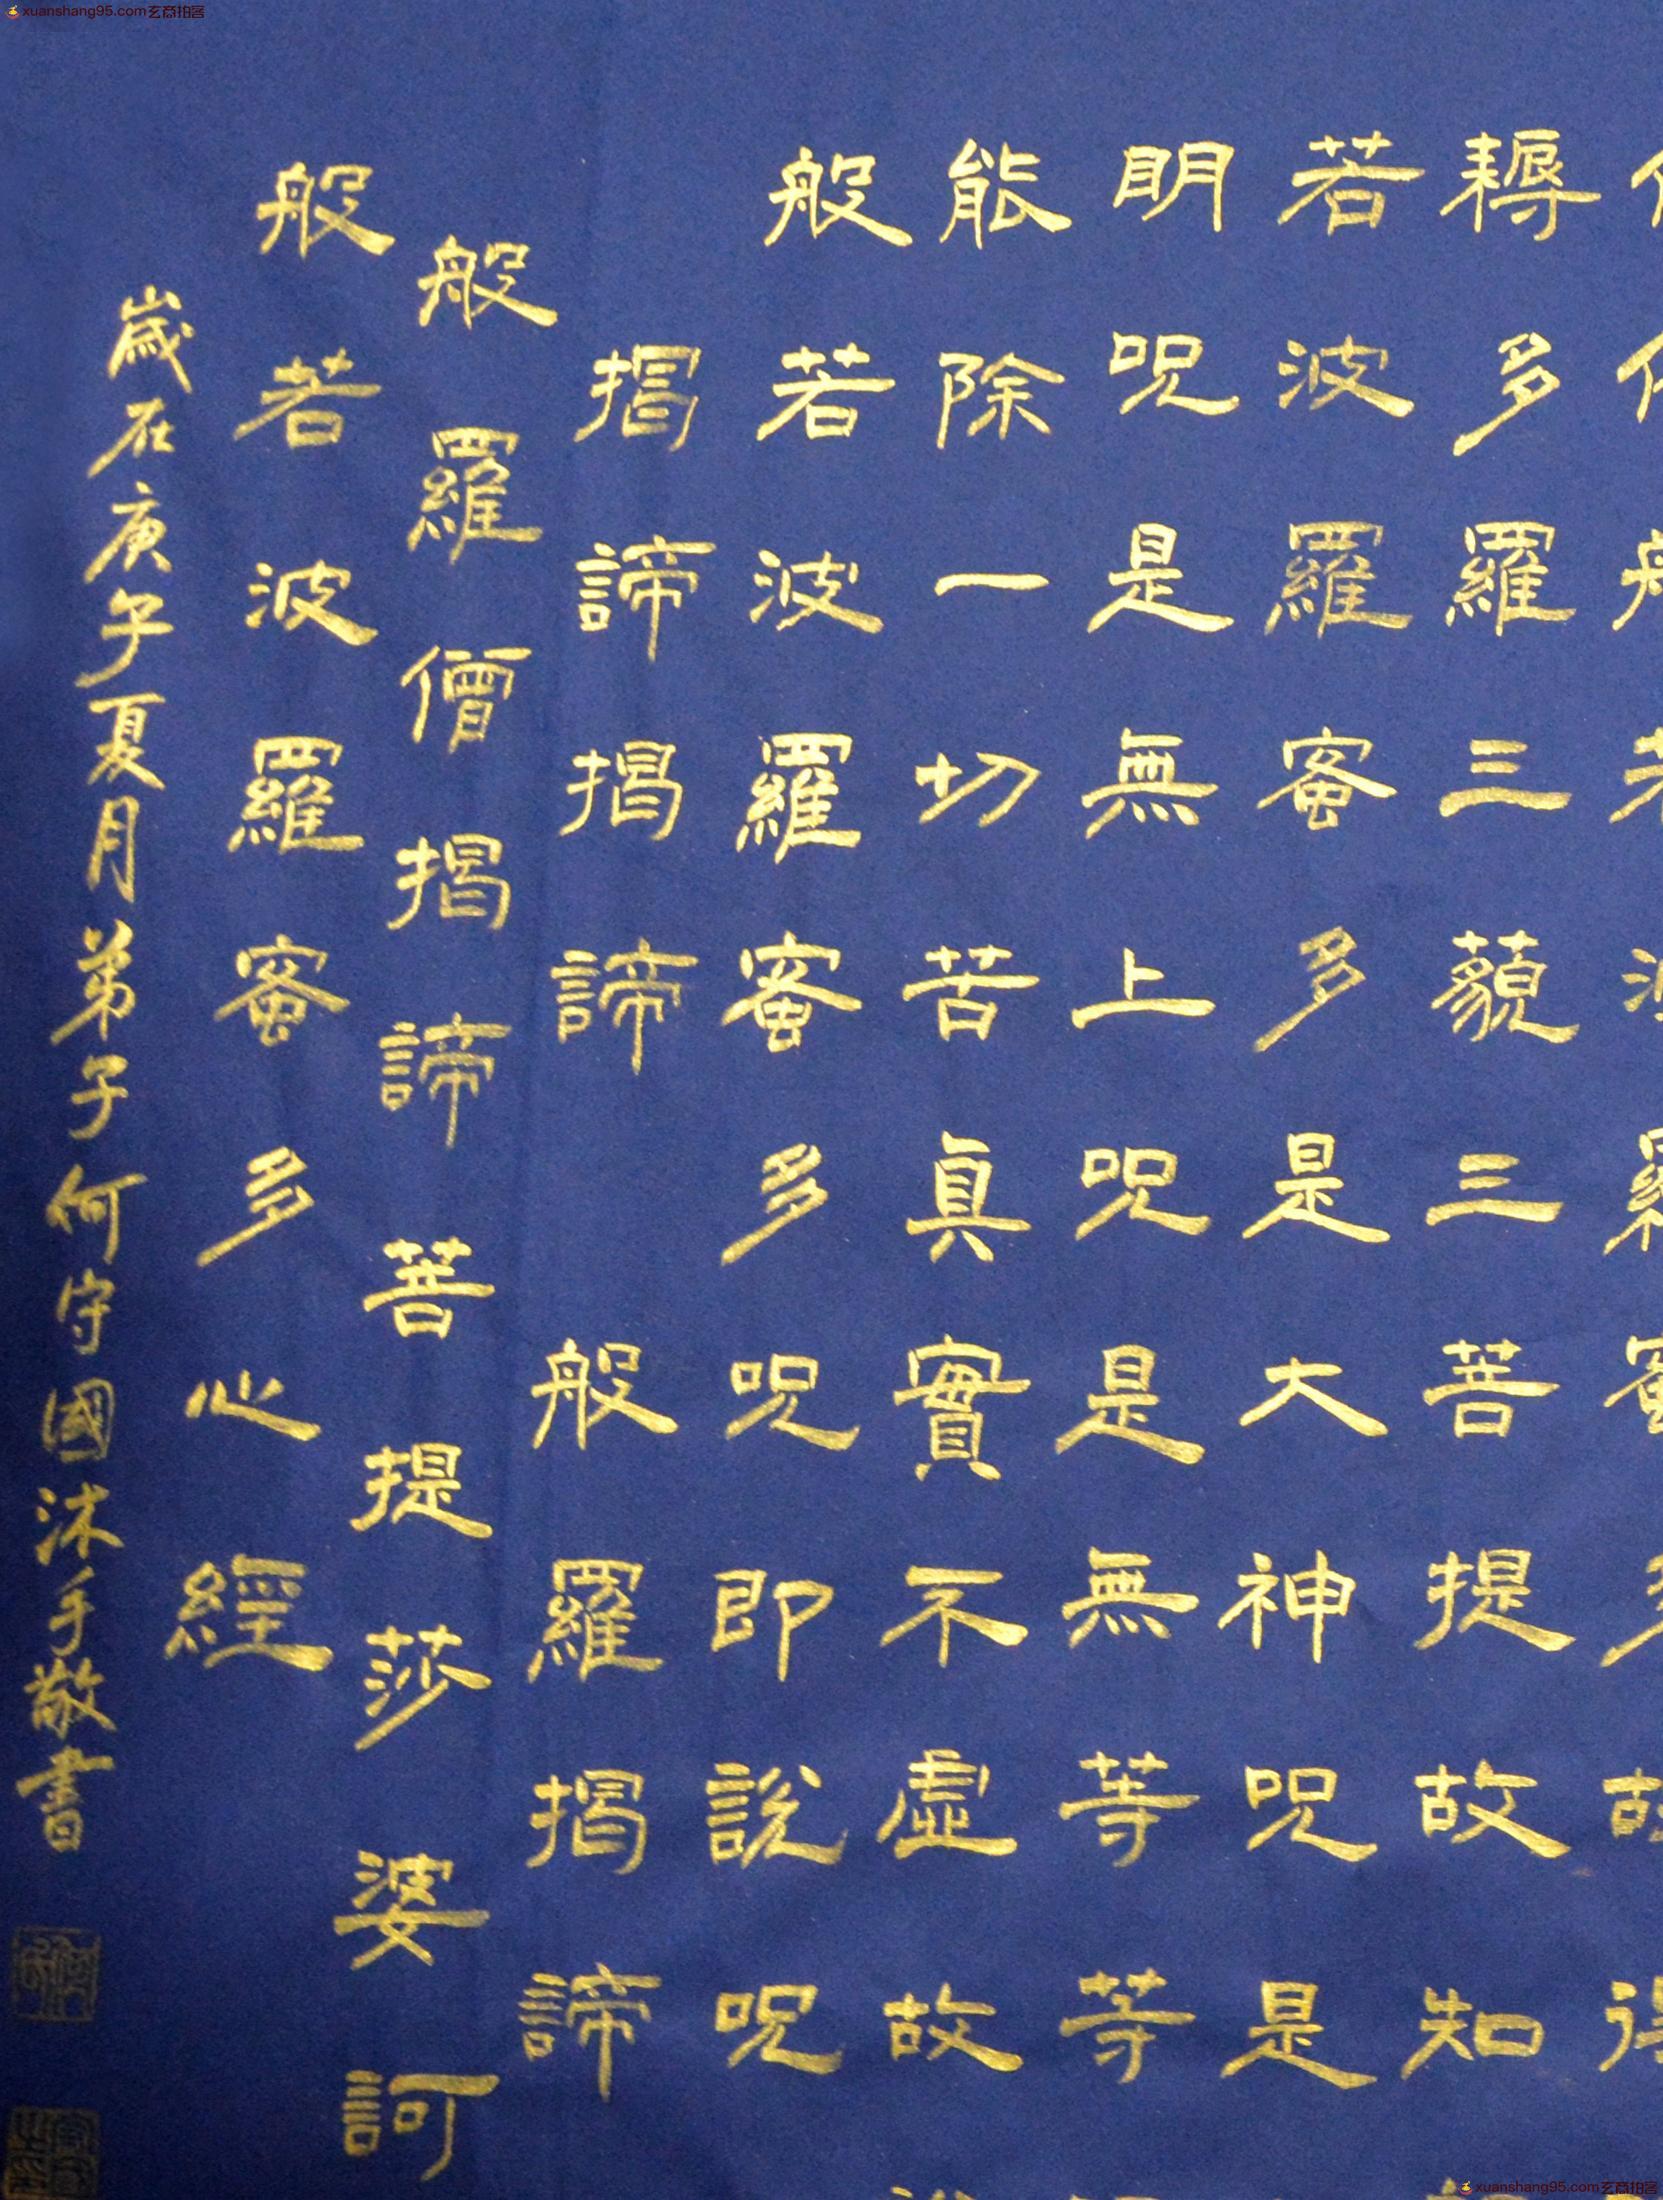 xuanshang95.com玄商拍客
耨多羅三藐三菩提故知
若波羅蜜多是大神呪是
明呪是無上呪是無等等
能除一切苦真實不虛故
般若波羅蜜多呪即說呪
揭諦揭諦 般羅揭諦
般羅僧揭諦菩提莎婆訶
般若波羅蜜多心經
歲在庚子夏月弟子何守國沐手敬書
xuanshang95.com玄商拍客